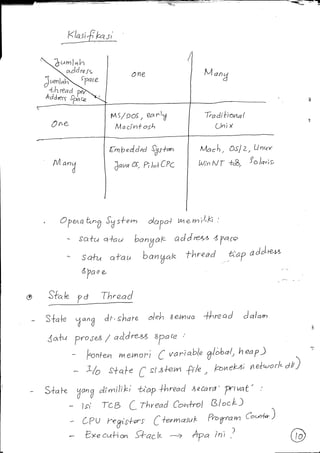 Klasifikasi
Jumlah address space
Jumlah thread per Address Space
One
Many
One
MS/DOS, early Macintosh
Traditional Unix
Many
Embedded System
Java OS, Pilot CPC
Mach, OS/2, Linux
Win NT Solaris
Operating System dapat memiliki :
- satu atau banyak address space
- satu atau banyak thread tiap address space
State pd Thread
- State yang di-share oleh semua thread dalam
satu proses / address space :
- konten memori (variable global, heap)
- I/o state (sistem file, koneksi network dll)
- State yang dimiliki tiap thread secara "privat" :
- isi TCB (Thread Control Block)
- CPU registers (termasuk Program Counter)
- Execution Stack → Apa ini ?
10